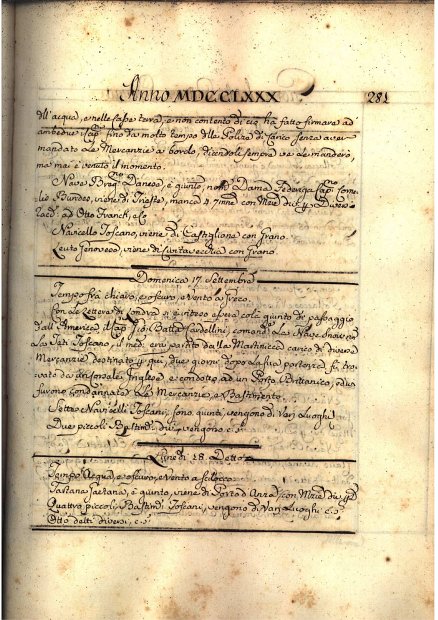 Anno MDCCLXXX
281
dll'acqua, e nelle case terrà, e non contento di ciò, ha fatto firmare ad
ambedue i Cap.ⁿⁱ fino da molto tempo dlle Polize di Carico senza aver
mandato Le Mercanzie a bordo, dicendoli sempre ve le manderò,
ma mai è venuto il momento.
Nave Danese, è giunto, nom.ᵗᵒ Dama Federiga Cap.ⁿᵒ
Bundes, viene di Trieste, manca 47 con
ad Otto Franck, e C.
Navicello Toscano, viene di Castiglione con Grano
Leuto Genovese, viene di Civitavecchia con Grano
Domenica 17. Settembre
Tempo frà chiaro, e oscuro, e Vento a Greco.
Con Le Lettere di Londra si è inteso essere colà giunto di passaggio
dall'America il Cap. Gio: Batta Sardellini, comand.ᵗᵉ La Nave
Toscano, il med. era partito dalla Martinicca carico di diverse
Mercanzie destinato p qui, due giorni dopo La sua partenza fù tro-
vato da un Corsale Inglese, e condotto ad un Porto Brittanico, ed ivi
furono condannate Le Mercanzie, e Bastimento.
Sette Navicelli Toscani, sono giunti, vengono di Varj Luoghi
Due piccoli Bastim.ᵗⁱ div.ⁱ vengono c.s.
Lunedi 18. Detto
Tempo Acqua, e oscuro, e Vento a Scilocco
Tartana Gaetana, è giunto, viene di Porto d'Anzo, con
Quattro piccoli Bastim.ᵗⁱ Toscani, vengono di Varj Luoghi c.s.
Otto detti diversi, c.s.